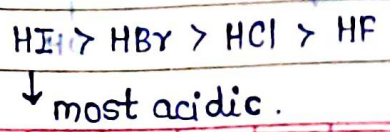 HI > HBr > HCl > HF
↓ most acidic.